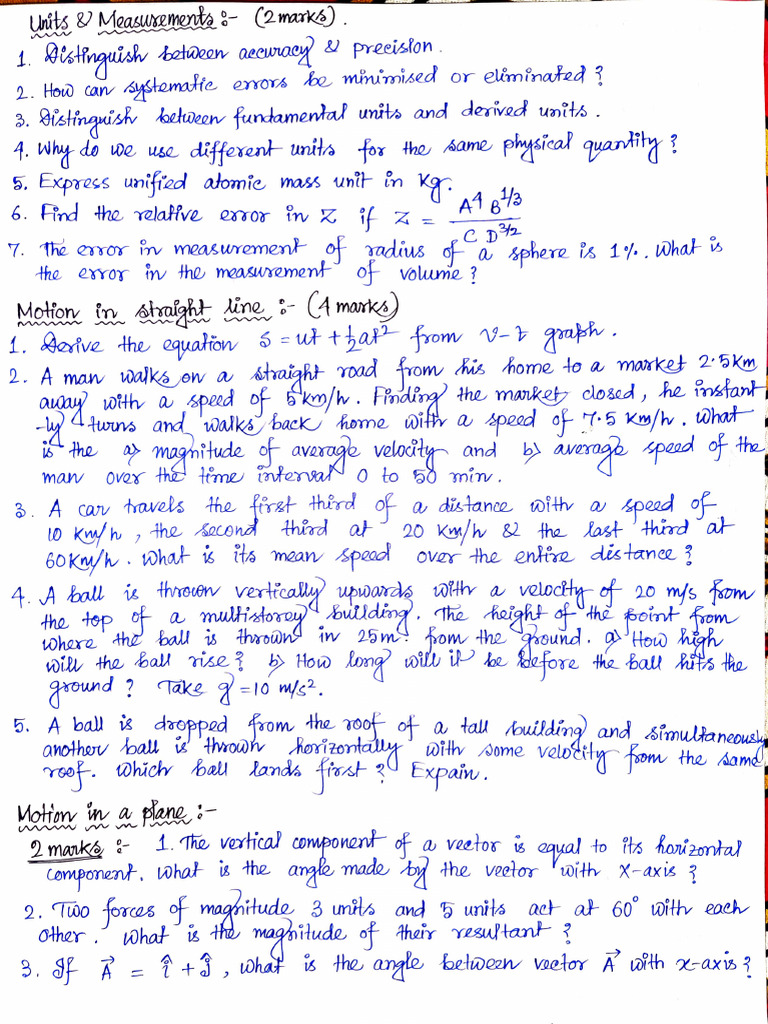 Units & Measurements :- (2 marks).
1. Distinguish between accuracy & precision.
2. How can systematic errors be minimised or eliminated?
3. Distinguish between fundamental units and derived units.
4. Why do we use different units for the same physical quantity?
5. Express unified atomic mass unit in kg.
6. Find the relative error in Z if Z = A⁴ B^1/3 / C D^3/2
7. The error in measurement of radius of a sphere is 1%. What is
the error in the measurement of volume?
Motion in straight line :- (4 marks)
1. Derive the equation S = ut + ½at² from v-t graph.
2. A man walks on a straight road from his home to a market 2.5km
away with a speed of 5 km/h. Finding the market closed, he instant
-ly turns and walks back home with a speed of 7.5 km/h. What
is the a) magnitude of average velocity and b) average speed of the
man over the time interval 0 to 50 min.
3. A car travels the first third of a distance with a speed of
10 km/h, the second third at 20 km/h & the last third at
60km/h. What is its mean speed over the entire distance?
4. A ball is thrown vertically upwards with a velocity of 20 m/s from
the top of a multistorey building. The height of the point from
where the ball is thrown in 25m. from the ground. a) How high
will the ball rise? b) How long will it be before the ball hits the
ground? Take g = 10 m/s².
5. A ball is dropped from the roof of a tall building and simultaneously
another ball is thrown horizontally with some velocity from the same
roof. Which ball lands first? Expain.
Motion in a plane :-
2 marks :- 1. The vertical component of a vector is equal to its horizontal
component. What is the angle made by the vector with X-axis?
2. Two forces of magnitude 3 units and 5 units act at 60° with each
other. What is the magnitude of their resultant?
3. If A⃗ = î + ĵ, what is the angle between vector A⃗ with x-axis?